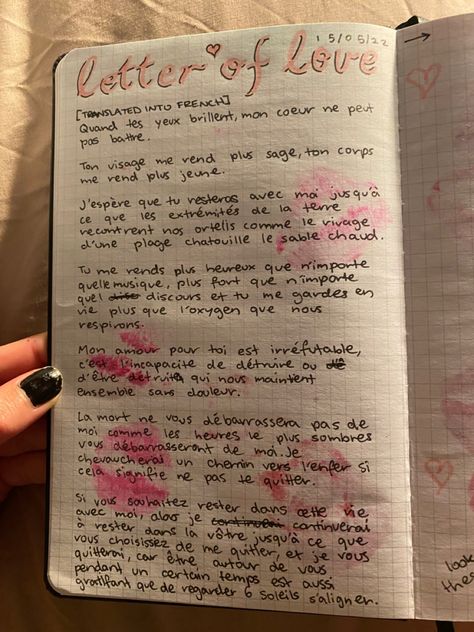 15/05/22
letter of love
[TRANSLATED INTO FRENCH]
Quand tes yeux brillent, mon coeur ne peut
pas battre.
Ton visage me rend plus sage, ton corps
me rend plus jeune.
J'espère que tu resteras avec moi jusqu'à
ce que les extrémités de la terre
recontrent nos ortells comme le rivage
d'une plage chatouille le sable chaud.
Tu me rends plus heureux que n'importe
quelle musique, plus fort que n'importe
quel discours et tu me gardes en
vie plus que l'oxygen que nous
respirons.
Mon amour pour toi est irréfutable,
c'est l'incapacite de détruire ou
d'être détruite qui nous maintent
ensemble sans douleur.
La mort ne vous débarrassera pas de
moi comme les heures le plus sombres
vous débarrasseront de moi. Je
chevaucherai un chemin vers l'enfer si
cela signifie ne pas te quitter.
Si vous souhaitez rester dans cette vie
avec moi, alors je continuerai
à rester dans la vôtre jusqu'à ce que
vous choisissez de me quitter, et je vous
quitterai, car être autour de vous
pendant un certain temps est aussi
gratifant que de regarder 6 soleils s'aligner.
look
these